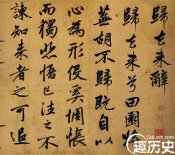 歸去来辭
歸去来兮田園將
蕪胡不歸既自以
心為形役奚惆悵
而獨悲悟已往之不
諫知来者之可追
趣历史
Qulishi.com